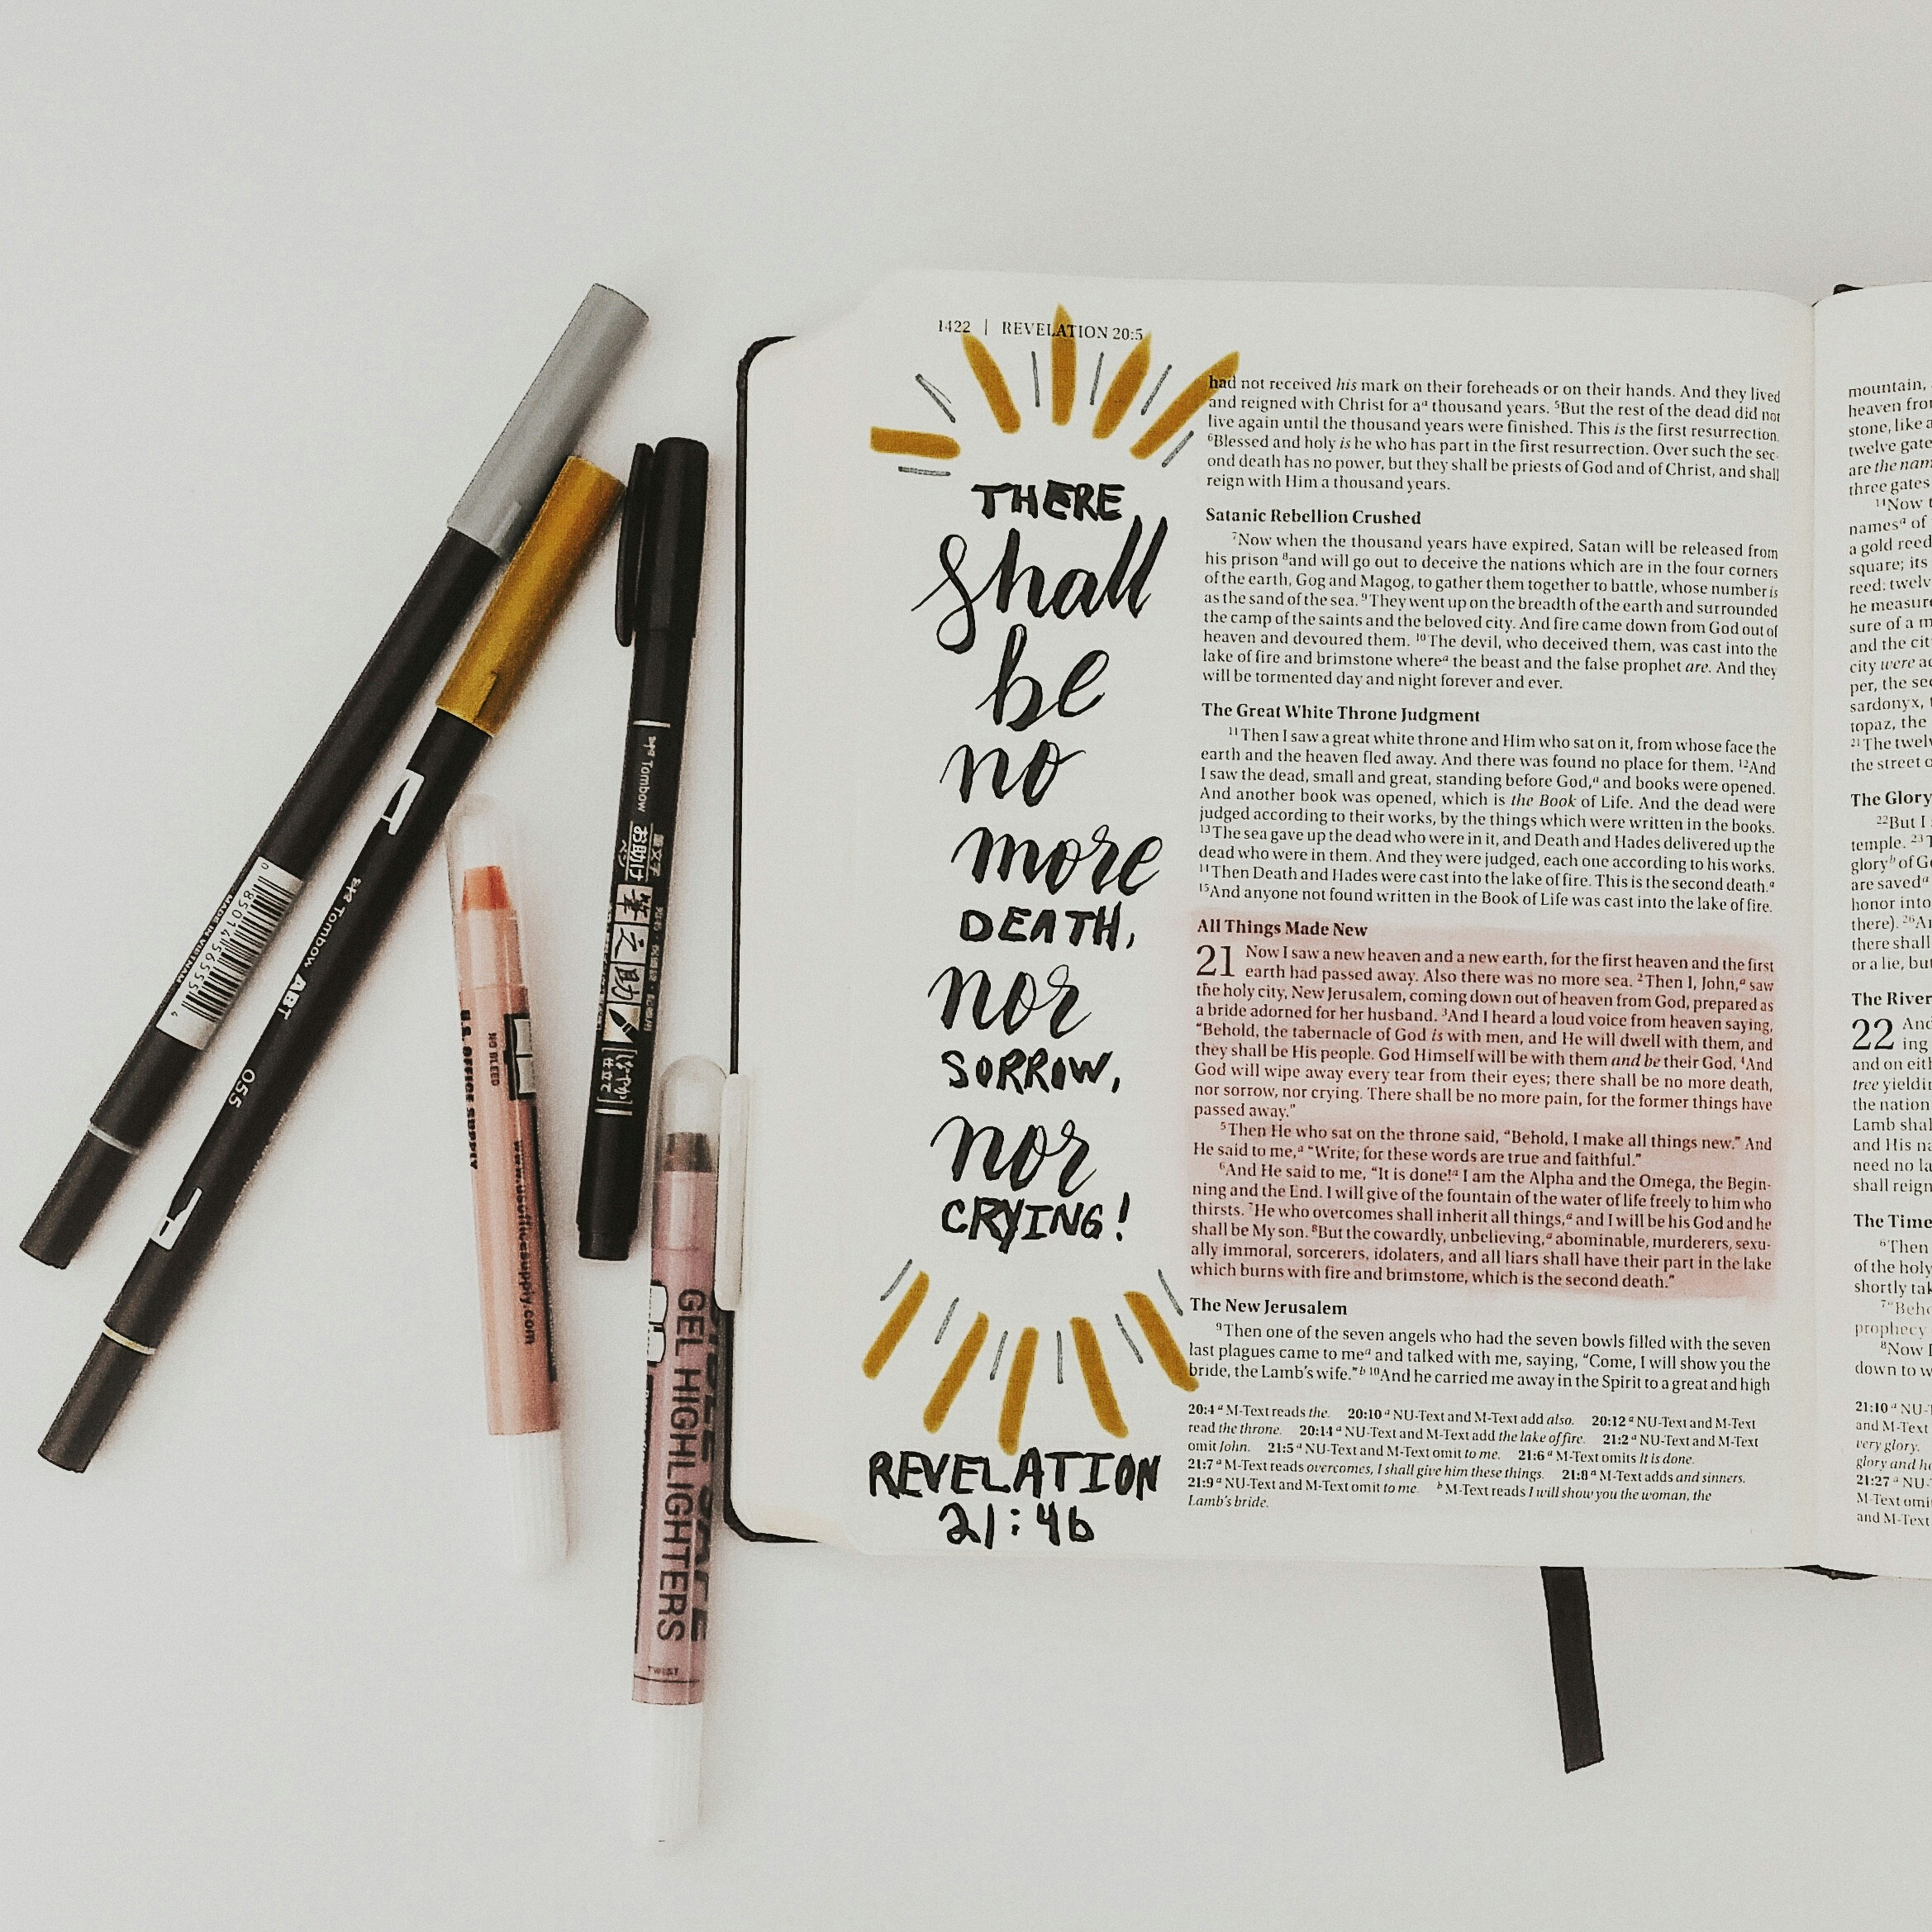 1422 | REVELATION 20:5
THERE
shall
be
no
more
DEATH,
nor
SORROW,
nor
CRYING!
REVELATION
21:4b
had not received his mark on their foreheads or on their hands. And they lived
and reigned with Christ for aᵃ thousand years. ⁵But the rest of the dead did not
live again until the thousand years were finished. This is the first resurrection.
⁶Blessed and holy is he who has part in the first resurrection. Over such the sec-
ond death has no power, but they shall be priests of God and of Christ, and shall
reign with Him a thousand years.
Satanic Rebellion Crushed
⁷Now when the thousand years have expired, Satan will be released from
his prison ⁸and will go out to deceive the nations which are in the four corners
of the earth, Gog and Magog, to gather them together to battle, whose number is
as the sand of the sea. ⁹They went up on the breadth of the earth and surrounded
the camp of the saints and the beloved city. And fire came down from God out of
heaven and devoured them. ¹⁰The devil, who deceived them, was cast into the
lake of fire and brimstone whereᵃ the beast and the false prophet are. And they
will be tormented day and night forever and ever.
The Great White Throne Judgment
¹¹Then I saw a great white throne and Him who sat on it, from whose face the
earth and the heaven fled away. And there was found no place for them. ¹²And
I saw the dead, small and great, standing before God,ᵃ and books were opened.
And another book was opened, which is the Book of Life. And the dead were
judged according to their works, by the things which were written in the books.
¹³The sea gave up the dead who were in it, and Death and Hades delivered up the
dead who were in them. And they were judged, each one according to his works.
¹⁴Then Death and Hades were cast into the lake of fire. This is the second death.ᵃ
¹⁵And anyone not found written in the Book of Life was cast into the lake of fire.
All Things Made New
21 Now I saw a new heaven and a new earth, for the first heaven and the first
earth had passed away. Also there was no more sea. ²Then I, John,ᵃ saw
the holy city, New Jerusalem, coming down out of heaven from God, prepared as
a bride adorned for her husband. ³And I heard a loud voice from heaven saying,
“Behold, the tabernacle of God is with men, and He will dwell with them, and
they shall be His people. God Himself will be with them and be their God. ⁴And
God will wipe away every tear from their eyes; there shall be no more death,
nor sorrow, nor crying. There shall be no more pain, for the former things have
passed away.”
⁵Then He who sat on the throne said, “Behold, I make all things new.” And
He said to me,ᵃ “Write, for these words are true and faithful.”
⁶And He said to me, “It is done!ᵃ I am the Alpha and the Omega, the Begin-
ning and the End. I will give of the fountain of the water of life freely to him who
thirsts. ⁷He who overcomes shall inherit all things,ᵃ and I will be his God and he
shall be My son. ⁸But the cowardly, unbelieving,ᵃ abominable, murderers, sexu-
ally immoral, sorcerers, idolaters, and all liars shall have their part in the lake
which burns with fire and brimstone, which is the second death.”
The New Jerusalem
⁹Then one of the seven angels who had the seven bowls filled with the seven
last plagues came to meᵃ and talked with me, saying, “Come, I will show you the
bride, the Lamb's wife.”ᵇ ¹⁰And he carried me away in the Spirit to a great and high
20:4 ᵃ M-Text reads the. 20:10 ᵃ NU-Text and M-Text add also. 20:12 ᵃ NU-Text and M-Text
read the throne. 20:14 ᵃ NU-Text and M-Text add the lake of fire. 21:2 ᵃ NU-Text and M-Text
omit John. 21:5 ᵃ NU-Text and M-Text omit to me. 21:6 ᵃ M-Text omits It is done.
21:7 ᵃ M-Text reads overcomes, I shall give him these things. 21:8 ᵃ M-Text adds and sinners.
21:9 ᵃ NU-Text and M-Text omit to me. ᵇ M-Text reads I will show you the woman, the
Lamb's bride.
mountain,
stone, like a
twelve gate
are the nam
three gates
¹⁴Now t
namesᵃ of
a gold reed
square; its
reed: twelv
he measure
sure of a m
and the cit
city were ac
per, the sec
sardonyx, t
topaz, the
²¹The twel
the street o
The Glory
²²But I s
temple. ²³T
gloryᵇ of Go
are savedᵃ
honor into
there). ²⁶An
there shall
or a lie, but
The River
22 And
ing
and on eith
tree yieldin
the nation
Lamb shal
and His na
need no la
shall reign
The Time
⁶Then
of the holy
shortly tak
⁷“Beho
prophecy
⁸Now I
down to w
21:10 ᵃ NU-T
and M-Text
very glory.
glory and ho
21:27 ᵃ NU-
M-Text omi
and M-Text
MADE IN VIETNAM
0 85014 56555 4
Tombow ABT
055
Tombow
U.S. OFFICE SUPPLY
NO BLEED
www.usofficesupply.com
BIBLE SAFE
GEL HIGHLIGHTERS
TWIST